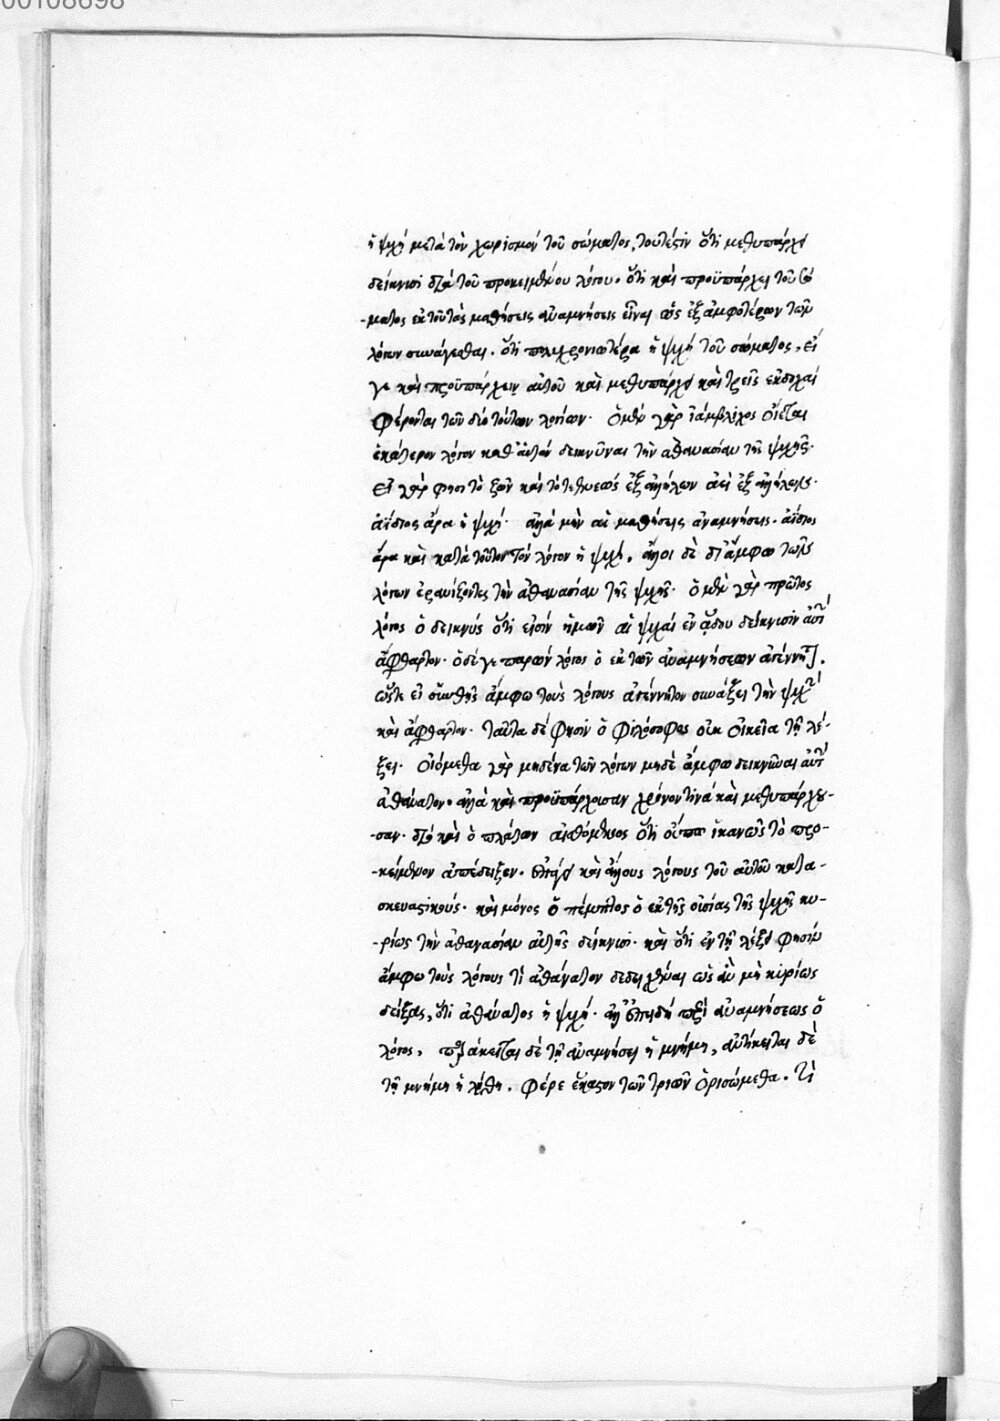 00108698
ἡ ψυχὴ μετὰ τὸν χωρισμὸν τοῦ σώματος, τουτέστιν ὅτι μεθυπάρχει
δείκνυσι διὰ τοῦ προκειμένου λόγου· ὅτι καὶ προϋπάρχει τοῦ σώ
-ματος ἐκ τοῦ τὰς μαθήσεις ἀναμνήσεις εἶναι ὡς ἐξ ἀμφοτέρων τῶν
λόγων συνάγεσθαι. ὅτι πολυχρονιωτέρα ἡ ψυχὴ τοῦ σώματος, εἴ
γε καὶ προϋπάρχειν αὐτοῦ καὶ μεθυπάρχει καὶ τρεῖς ἐκδοχαὶ
φέρονται τῶν δύο τούτων λογίων· ὁ μὲν γὰρ ἰάμβλιχος οἴεται
ἑκάτερον λόγον καθ' αὑτὸν δεικνῦναι τὴν ἀθανασίαν τῆς ψυχῆς·
εἰ γάρ φησι τὸ ζῶν καὶ τὸ τεθνεὼς ἐξ ἀλλήλων ἀεὶ ἐξ ἀλλήλοις·
ἀΐδιος ἄρα ἡ ψυχή· ἀλλὰ μὴν αἱ μαθήσεις ἀναμνήσεις. ἀΐδιος
ἄρα καὶ κατὰ τοῦτον τὸν λόγον ἡ ψυχή. ἄλλοι δὲ δι' ἄμφω τῶν
λόγων ἐρανίζοντες τὴν ἀθανασίαν τῆς ψυχῆς· ὁ μὲν γὰρ πρῶτος
λόγος ὁ δεικνὺς ὅτι εἰσὶν ἡμῶν αἱ ψυχαὶ ἐν ᾅδου δείκνυσιν αὐτὴν
ἄφθαρτον· ὁ δέ γε παρὼν λόγος ὁ ἐκ τῶν ἀναμνήσεων ἀγέννητον.
ὥστε εἰ συνθῇς ἄμφω τοὺς λόγους ἀγέννητον συνάξει τὴν ψυχὴν
καὶ ἄφθαρτον· ταῦτα δέ φησιν ὁ φιλόσοφος οὐκ οἰκεῖα τῇ λέ-
ξει. οἰόμεθα γὰρ μηδένα τῶν λόγων μηδὲ ἄμφω δεικνῦναι αὐτὴν
ἀθάνατον· ἀλλὰ καὶ προϋπάρχουσαν χρόνον τινὰ καὶ μεθυπάρχου-
-σαν· διὸ καὶ ὁ πλάτων αἰσθόμενος ὅτι οὔπω ἱκανῶς τὸ προ-
-κείμενον ἀπέδειξεν. ἐπάγει καὶ ἄλλους λόγους τοῦ αὐτοῦ κατα-
σκευαστικούς· καὶ μόνος ὁ πέμπτος ὁ ἐκ τῆς οὐσίας τῆς ψυχῆς κυ-
-ρίως τὴν ἀθανασίαν αὐτῆς δείκνυσι· καὶ ὅτι ἐν τῇ λέξει φησὶν
ἄμφω τοὺς λόγους τι ἀθάνατον δεδειχέναι ὡς ἂν μὴ κυρίως
δείξας, ὅτι ἀθάνατος ἡ ψυχή· ἀλλ' ἐπειδὴ περὶ ἀναμνήσεως ὁ
λόγος, παράκειται δὲ τῇ ἀναμνήσει ἡ μνήμη, ἀντίκειται δὲ
τῇ μνήμῃ ἡ λήθη. φέρε ἕκαστον τῶν τριῶν ὁρισώμεθα. τί